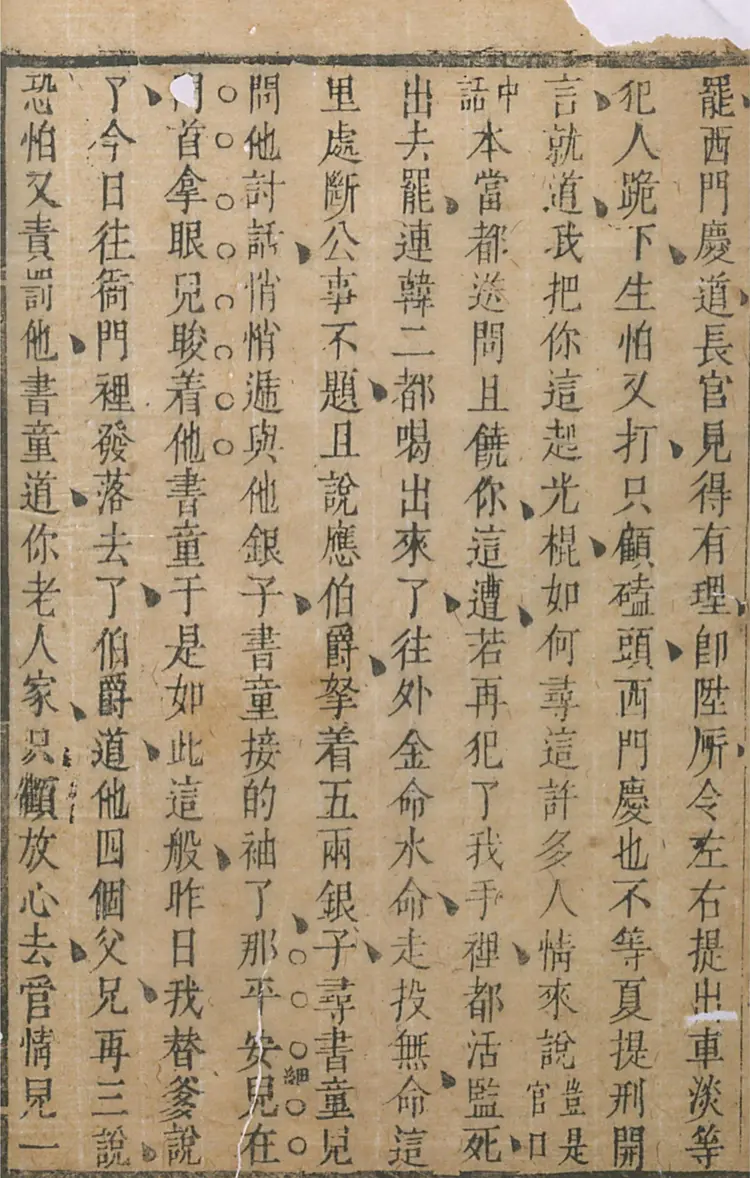 罷西門慶道長官見得有理卽陞𠩄令左右提出車淡等
犯人跪下生怕又打只顧磕頭西門慶也不等夏提刑開
言就道我把你這起光棍如何尋這許多人情來說豈是官口
中話本當都送問且饒你這遭若再犯了我手裡都活監死
出去罷連韓二都喝出來了往外金命水命走投無命這
里處斷公事不題且說應伯爵拏着五兩銀子尋書童兒
問他討話悄悄遞與他銀子書童接的袖了那平安兒在
細
門首拿眼兒睃着他書童于是如此這般昨日我替爹說
了今日往衙門裡發落去了伯爵道他四個父兄再三說
恐怕又責罰他書童道你老人家只顧放心去管情見一